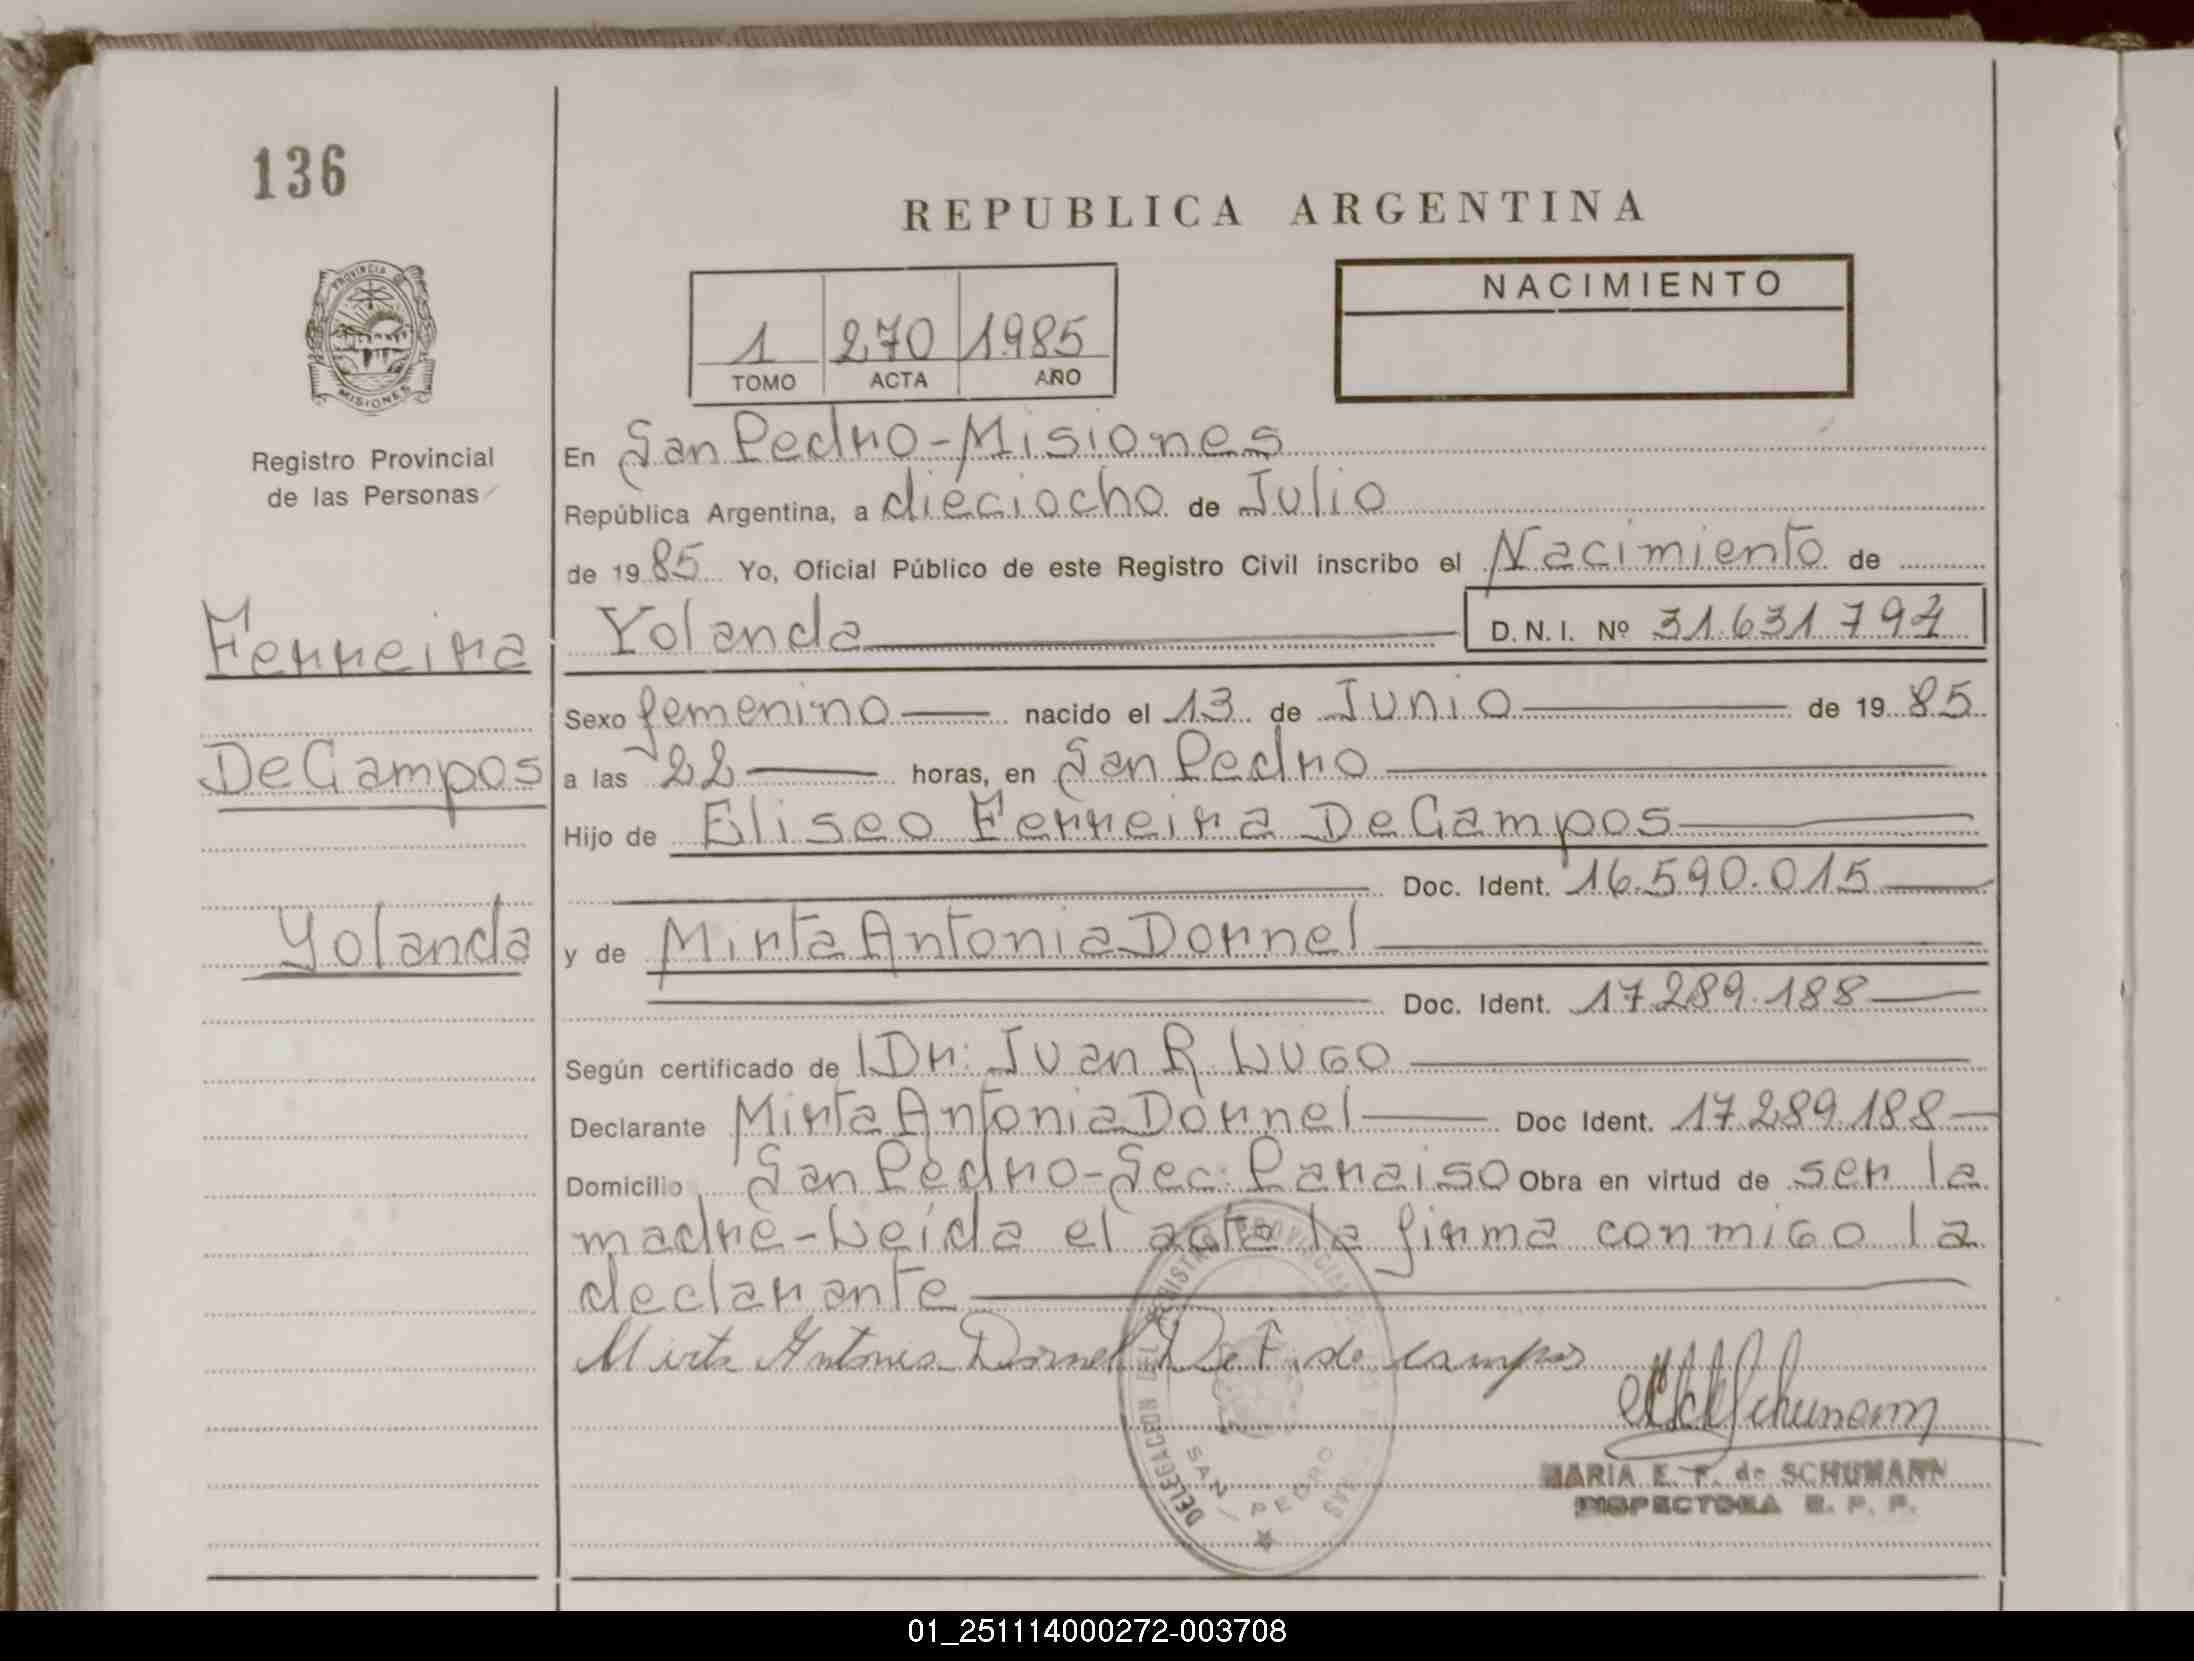 136
REPUBLICA ARGENTINA
NACIMIENTO
1 270 1985
TOMO ACTA AÑO
PROVINCIA DE
MISIONES
Registro Provincial
de las Personas
En San Pedro-Misiones
República Argentina, a dieciocho de Julio
de 1985 Yo, Oficial Público de este Registro Civil inscribo el Nacimiento de
Ferreira
Yolanda D.N.I. Nº 31.631.794
Sexo femenino nacido el 13 de Junio de 1985
De Campos
a las 22 horas, en San Pedro
Hijo de Eliseo Ferreira De Campos
Doc. Ident. 16.590.015
Yolanda
y de Mirta Antonia Dornel
Doc. Ident. 17.289.188
Según certificado de Dr: Juan R. Lugo
Declarante Mirta Antonia Dornel Doc Ident. 17.289.188
Domicilio San Pedro-Sec: Paraiso Obra en virtud de ser la
madre-Leída el acta la firma conmigo la
declarante
Mirta Antonia Dornel De F. de campos
Schumann
MARIA E. F. de SCHUMANN
INSPECTORA R. P. P.
DELEGACION DEL REGISTRO PROVINCIAL DE LAS PERSONAS
SAN PEDRO
01_251114000272-003708